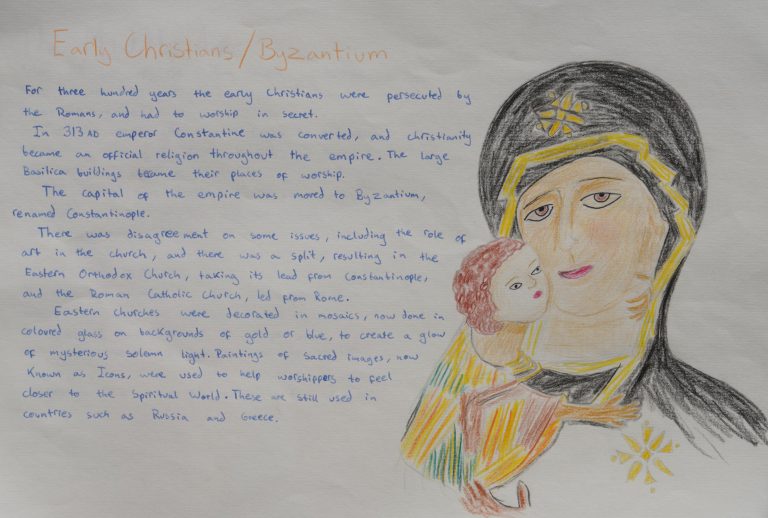 Early Christians/Byzantium
For three hundred years the early Christians were persecuted by
the Romans, and had to worship in secret.
In 313 AD emperor Constantine was converted, and christianity
became an official religion throughout the empire. The large
Basilica buildings became their places of worship.
The capital of the empire was moved to Byzantium,
renamed Constantinople.
There was disagreement on some issues, including the role of
art in the church, and there was a split, resulting in the
Eastern Orthodox Church, taking its lead from Constantinople,
and the Roman Catholic Church, led from Rome.
Eastern churches were decorated in mosaics, now done in
coloured glass on backgrounds of gold or blue, to create a glow
of mysterious solemn light. Paintings of sacred images, now
known as Icons, were used to help worshippers to feel
closer to the Spiritual World. These are still used in
countries such as Russia and Greece.